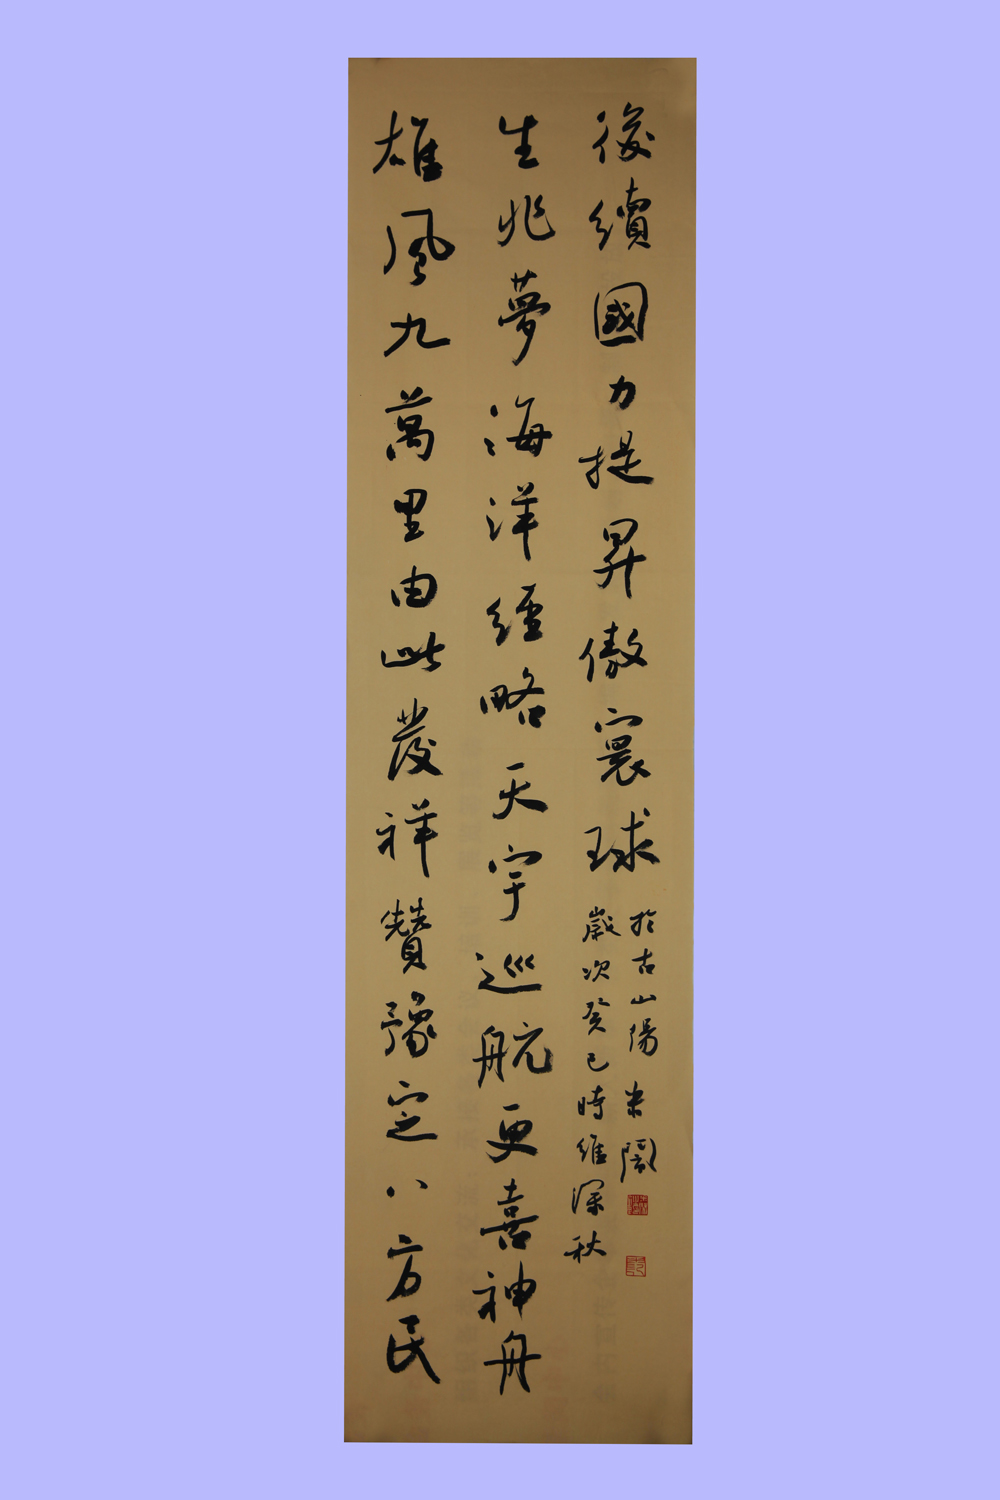 雄風九萬里由此發祥贊豫定八方民
生兆夢海洋經略天宇巡航更喜神舟
後續國力提昇傲寰球
歲次癸巳時維深秋
於古山陽